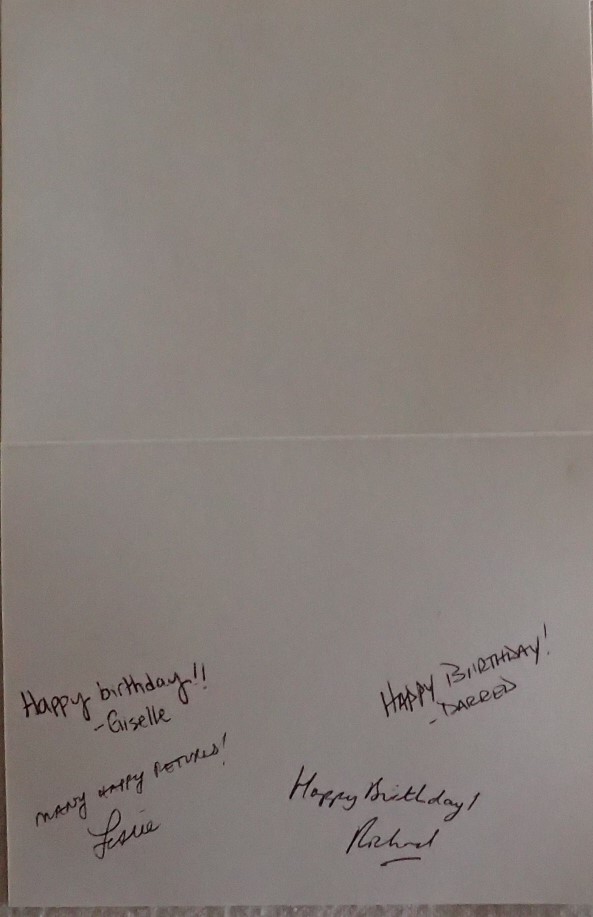 Happy birthday!!
-Giselle
HAPPY BIIRTHDAY!
-DARRED
MANY HAPPY RETURNS!
Leslie
Happy Birthday!
Richard